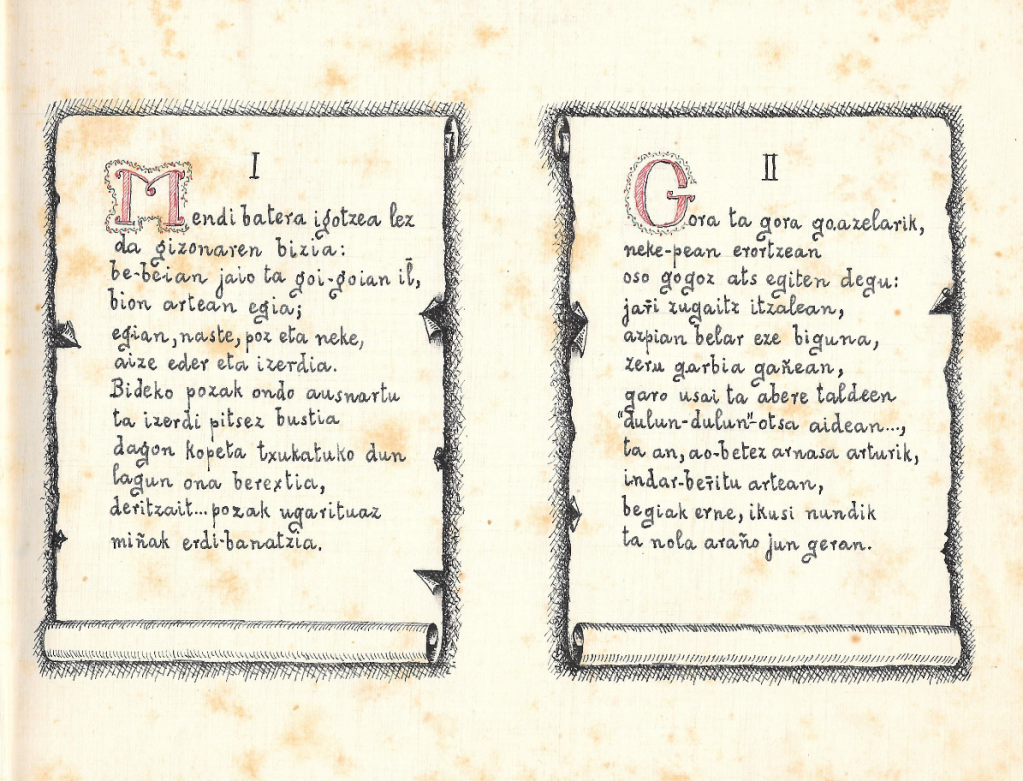 I
Mendi batera igotzea lez
da gizonaren bizia:
be-beian jaio ta goi-goian il̄,
bion artean egia;
egian, naste, poz eta neke,
aize eder eta izerdia.
Bideko pozak ondo ausnartu
ta izerdi pitsez bustia
dagon kopeta txukatuko dun
lagun ona berextia,
deritzait... pozak ugarituaz
miñak erdi-banatzia.
II
Gora ta gora goazelarik,
neke-pean erortzean
oso gogoz ats egiten degu:
jar̄i zugaitz itzalean,
azpian belar eze biguna,
zeru garbia gañean,
garo usai ta abere taldeen
"dulun-dulun"-otsa aidean...,
ta an, ao-betez arnasa arturik,
indar-ber̄itu artean,
begiak erne, ikusi nundik
ta nola araño jun geran.